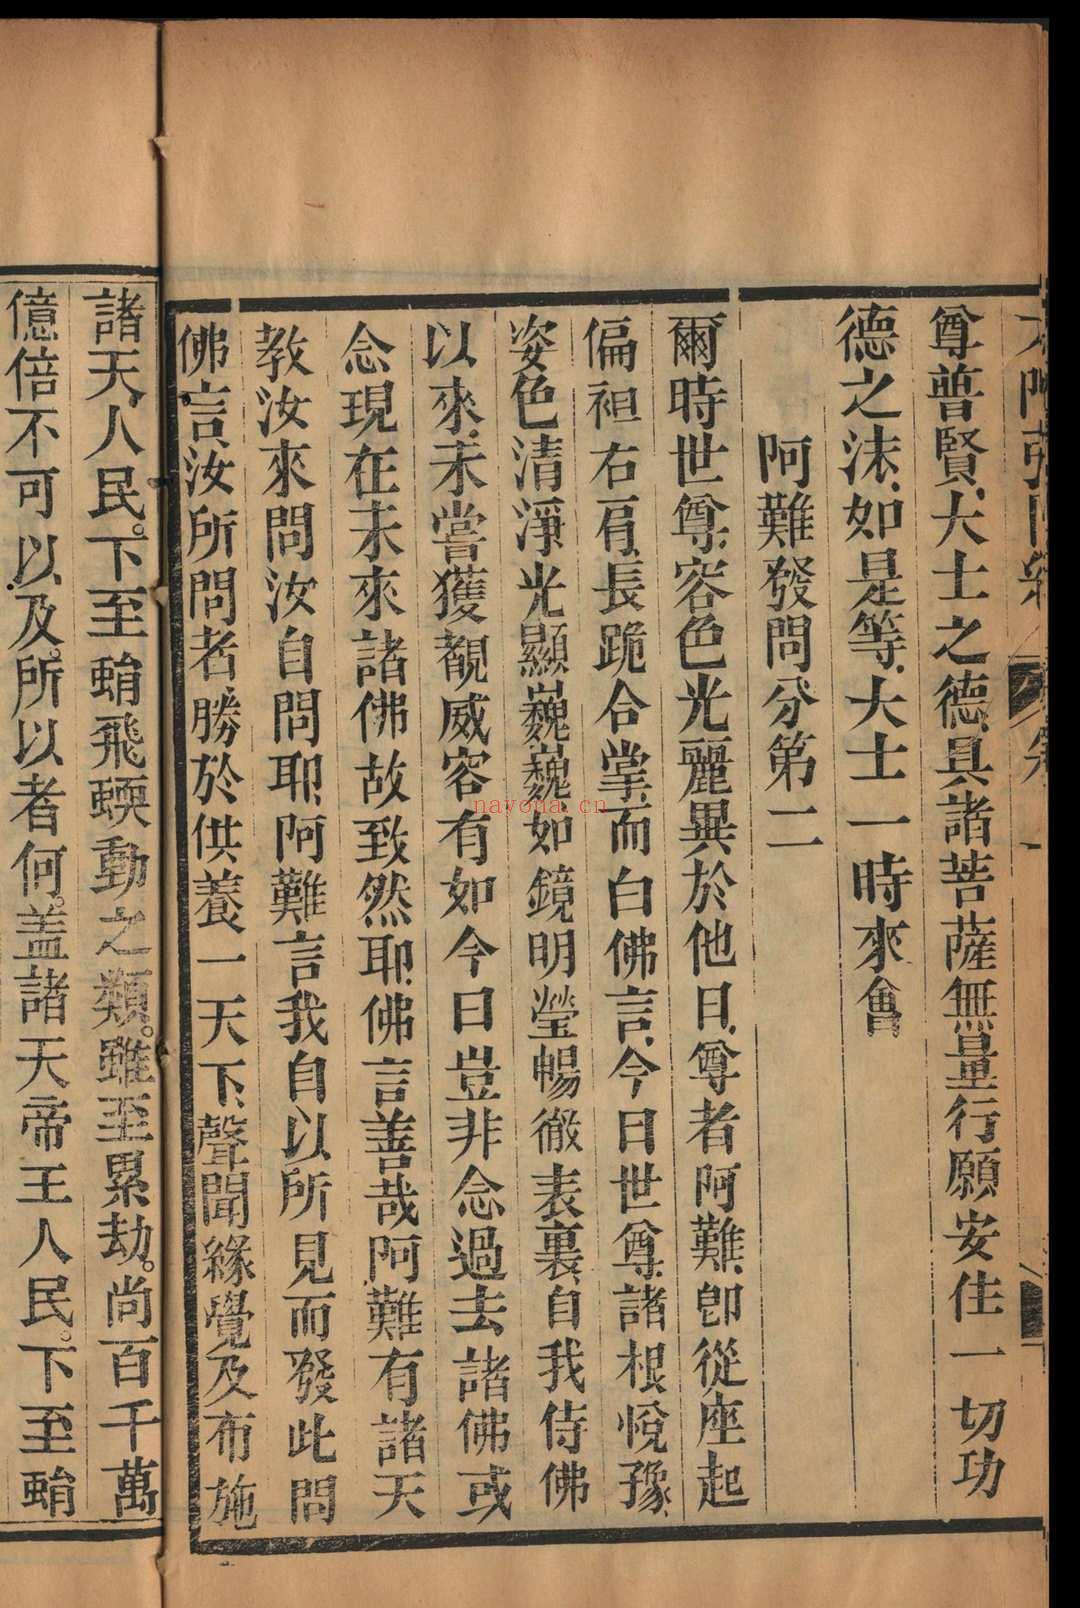 尊普賢、大士之德、具諸菩薩無量行願安住一切功
德之法、如是等、大士一時來會
阿難發問分第二
爾時世尊、容色光麗異於他日、尊者阿難、卽從座起
偏袒右肩、長跪合掌、而白佛言、今日世尊、諸根悅豫、
姿色清淨光顯巍巍、如鏡明瑩暢徹表裏、自我侍佛
以來、未嘗獲覩威容有如今日豈非念過去諸佛或
念現在未來諸佛故致然耶、佛言善哉阿難有諸天
教汝來問汝自問耶、阿難言我自以所見而發此問
佛言、汝所問者、勝於供養一天下、聲聞緣覺及布施
諸天、人民。下至蜎飛蝡動之類。雖至累劫。尚百千萬
億倍不可以及。所以者何。蓋諸天帝王人民。下至蜎
navona.cn